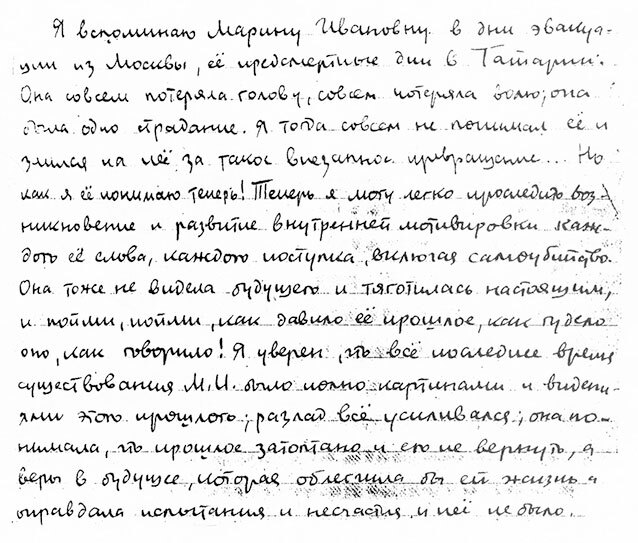 Я вспоминаю Марину Ивановну в дни эвакуа-
ции из Москвы, её предсмертные дни в Татарии.
Она совсем потеряла голову, совсем потеряла волю; она
была одно страдание. Я тогда совсем не понимал её и
злился на неё за такое внезапное превращение... Но
как я её понимаю теперь! Теперь я могу легко проследить воз-
никновение и развитие внутренней мотивировки каж-
дого её слова, каждого поступка, включая самоубийство.
Она тоже не видела будущего и тяготилась настоящим,
и пойми, пойми, как давило её прошлое, как гудело
оно, как говорило! Я уверен, что всё последнее время
существования М.И. было полно картинами и видени-
ями этого прошлого; разлад всё усиливался; она по-
нимала, что прошлое затоптано и его не вернуть, а
веры в будущее, которая облегчила бы ей жизнь и
оправдала испытания и несчастья, у неё не было.